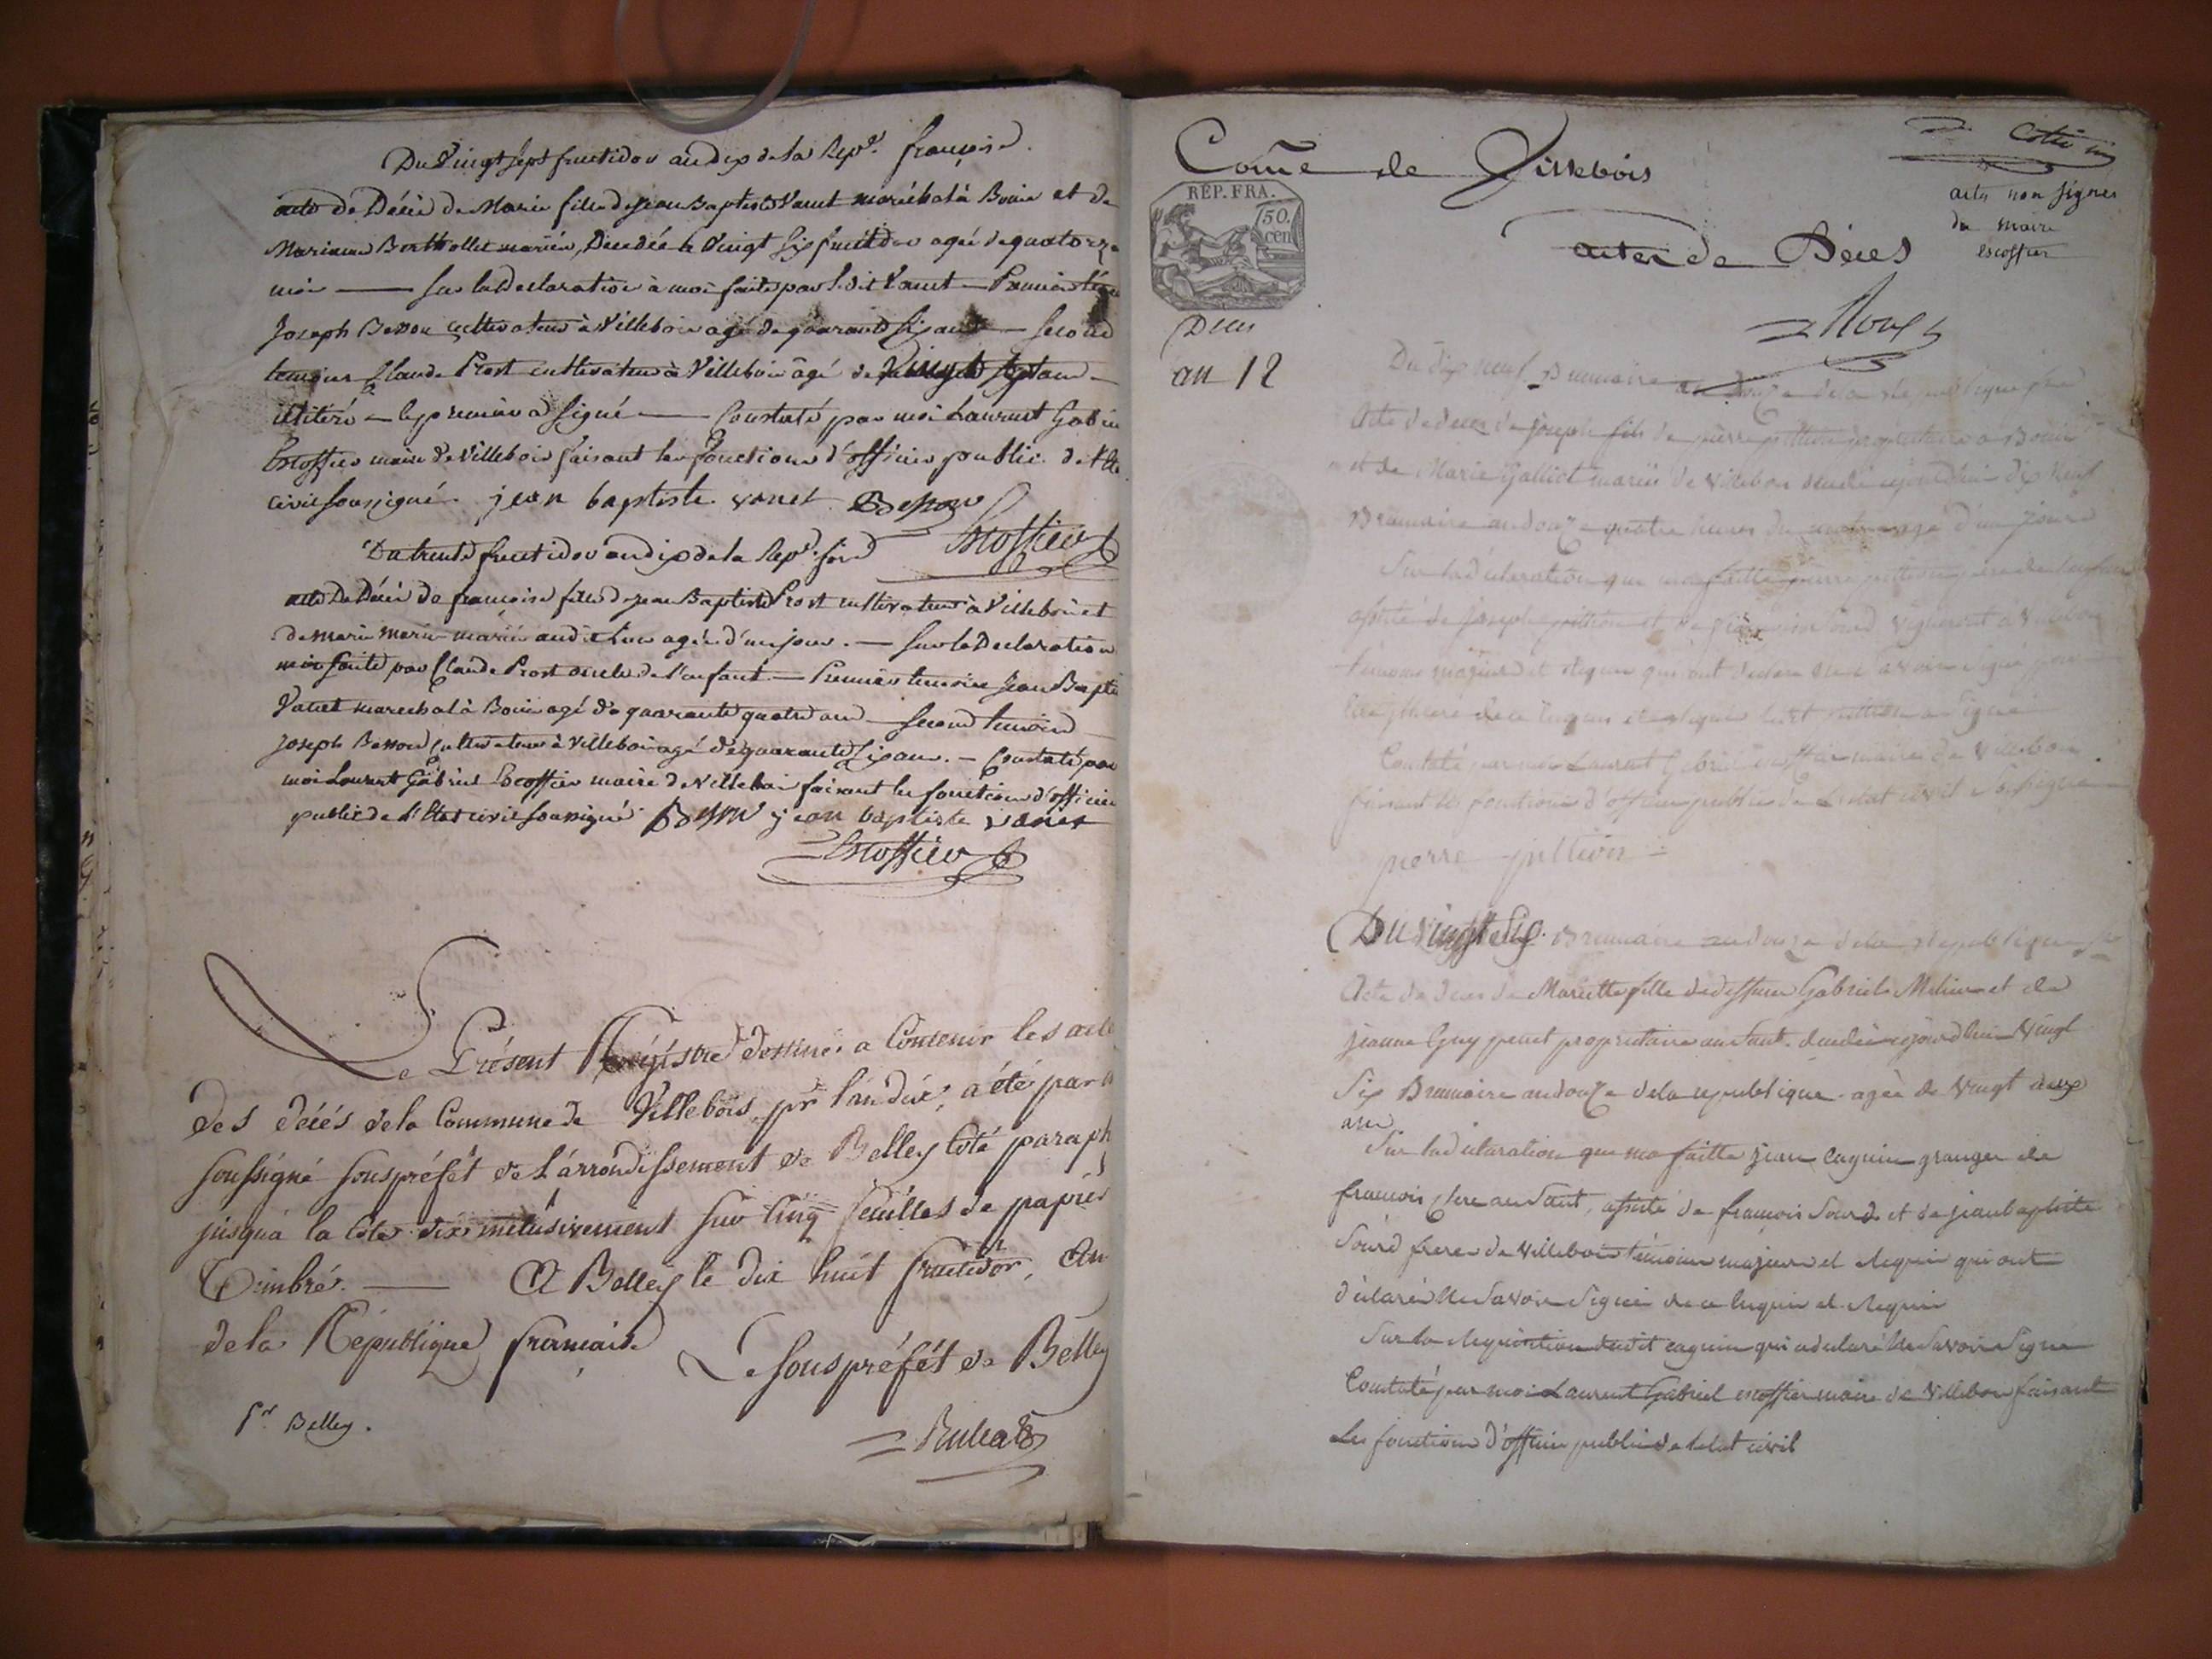 Du Vingt sept fructidor an dix de la Rep.e françoise
acte de Décès de Marie fille de jean Baptiste Vanet maréchal à Bouis et de
Mariane Berthollet mariés, Décedée le Vingt six fructidor agée de quatorze
mois — sur la Declaration à moi faite par ledit Vanet — Premier témoin
Joseph Besson cultivateur à Villebois agé de quarante six ans — second
temoins Claude Prost cultivateur à Villebois âgé de Vingt sept ans —
illitéré — le premier a signé — Constaté par moi Laurent Gabriel
Escoffier maire de Villebois faisant les fonctions d'officier public de l'Etat
civil soussigné. jean baptiste vanet Besson
Escoffier
Du trente fructidor an dix de la Rep.e
acte De Décès de françoise fille de jean Baptiste Prost cultivateur à Villebois et
de marie mariés audit lieu agée d'un jour. — sur la Declaration
moi faite par Claude Prost oncle de l'enfant — Premier temoin Jean Baptis
Vanet marechal à Bouis agé de quarante quatre ans — second temoins
Joseph Besson cultivateur à Villebois agé de quarante six ans. — Constaté par
moi Laurent Gabriel Escoffier maire de Villebois faisant les fonctions d'officier
public de l'Etat civil soussigné Besson jean baptiste vanet
Escoffier
Le Présent Régistre destiné a Contenir les acte
des décés de la Commune de Villebois, pr l'an dix, a été par n
soussigné souspréfét de L'arrondissement de Belley Coté paraph
jusqu'à la Cote dix inclusivement sur cinq feuilles de papier
Timbré. — A Belley le dix huit fructidor, An
de la République française
Le souspréfét de Belley
Pr Belley.
Come de Villebois
actes non signés
du maire
Escoffier
REP. FRA.
50. cen
actes de Déces
Deces
an 12
Roux
Du Dix neuf Brumaire an douze de la Republique
Acte de deces de joseph fils de pierre
et de Marie Galliot mariés de Villebois decedé cejourdhui dix neuf
Brumaire an douze quatre heures du matin agé d'un jour
Sur la déclaration que ma faitte pierre père de l'enfant
assisté de joseph et de
témoins majeurs et requis qui ont déclaré
Constaté par moi Laurent Gabriel Escoffier maire de Villebois
faisant les fonctions d'officier public de Letat civil Soussigné
pierre
Du Vingt Six Brumaire an douze de la Republique
Acte de deces de Mariette fille de deffunt Gabriel et de
jeanne Guy propriétaire au Saut. decedée cejourdhui Vingt
Six Brumaire an douze de la republique. agée de Vingt deux
ans
Sur la déclaration que ma faitte jean Caguin granger de
francois Clerc au Saut, assisté de francois Sourd et de jean baptiste
Sourd freres de Villebois témoins majeurs et requis qui ont
déclaré Ne Savoir Signer de ce Enquis et Requis
Sur la Requisition dudit caguin qui a declaré Ne Savoir Signer
Constaté par moi Laurent Gabriel escoffier maire de Villebois faisant
Les fonctions d'officier public de letat civil